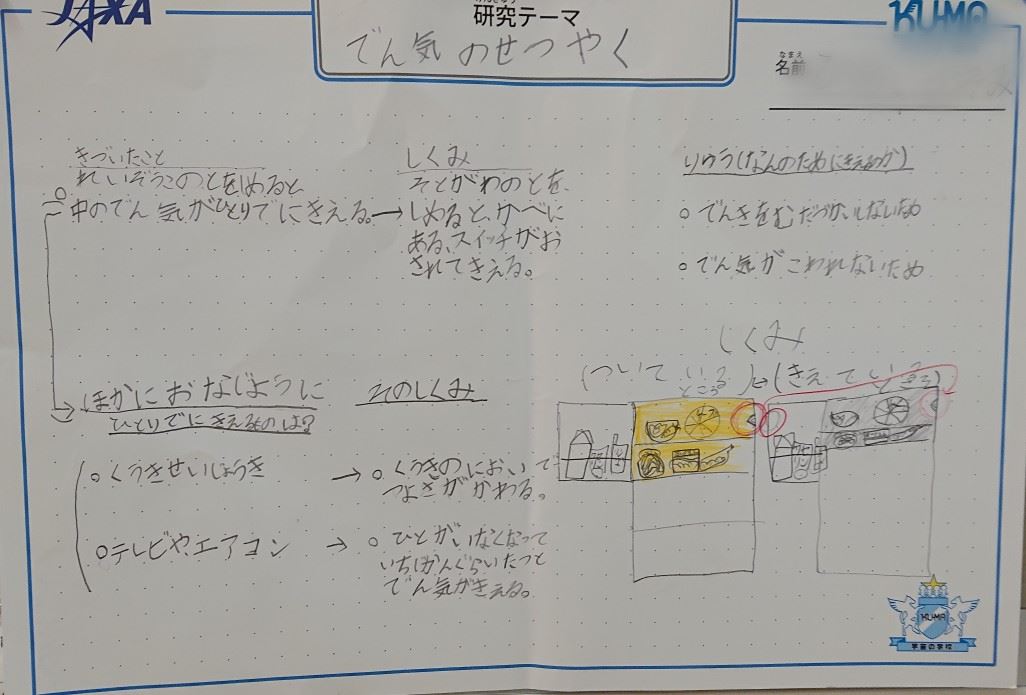 JAXA
研究テーマ
でん気のせつやく
KUMA
なまえ
名前
きづいたこと
れいぞうこのとをしめると、
中のでん気がひとりでにきえる。→
しくみ
そとがわのとを、
しめると、かべに
ある、スイッチがお
されてきえる。
りゆう(なんのためにきえるか)
○でんきをむだづかいしないため
○でん気がこわれないため
ほかにおなじように
ひとりでにきえるものは?
○くうきせいじょうき →
○テレビやエアコン →
そのしくみ
○くうきのにおいで
つよさがかわる。
○ひとがいなくなって
いちじかんぐらいたつと
でん気がきえる。
しくみ
(ついているところ)⇔(きえているところ)
KUMA
宇宙の学校